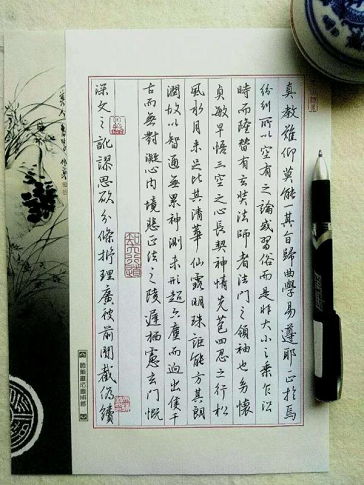 真教難仰莫能一其旨歸曲學易遵耶正於焉
紛糾所以空有之論或習俗而是非大小之乘乍沿
時而隆替有玄奘法師者法門之領袖也幼懷
貞敏早悟三空之心長契神情先苞四忍之行松
風水月未足比其清華仙露明珠詎能方其朗
潤故以智通無累神測未形超六塵而迥出隻千
古而無對凝心內境悲正法之陵遲栖慮玄門慨
深文之訛謬思欲分條析理廣彼前聞截偽續